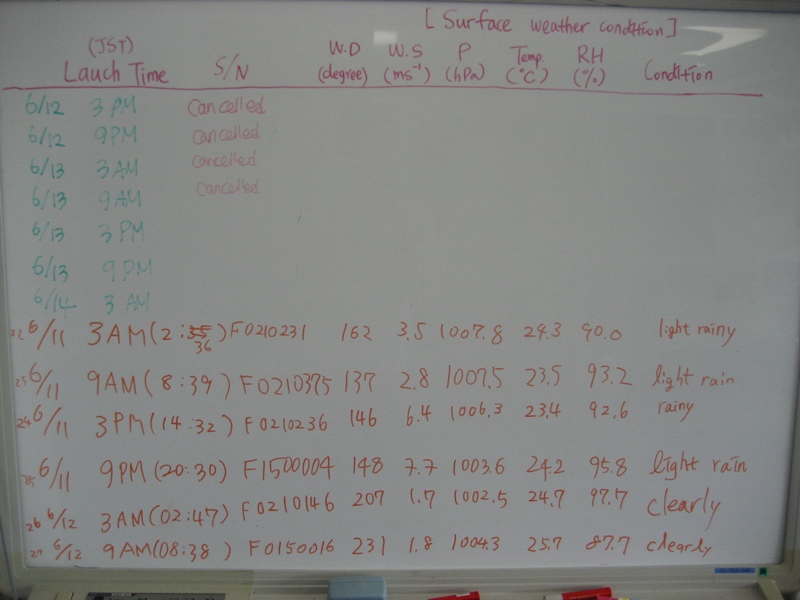 [Surface weather condition]
(JST) W.D W.S P Temp. RH
Lauch Time S/N (degree) (ms⁻¹) (hPa) (°C) (%) Condition
6/12 3 PM Cancelled
6/12 9PM Cancelled
6/13 3 AM Cancelled
6/13 9 AM Cancelled
6/13 3 PM
6/13 9 PM
6/14 3 AM
22 6/11 3 AM (2:36) F0210231 162 3.5 1007.8 24.3 90.0 light rainy
23 6/11 9AM (8:39) F0210375 137 2.8 1007.5 23.5 93.2 light rain
24 6/11 3PM (14:32) F0210236 146 6.4 1006.3 23.4 92.6 rainy
25 6/11 9PM (20:30) F1500004 148 7.7 1003.6 24.2 95.8 light rain
26 6/12 3AM (02:47) F0210146 207 1.7 1002.5 24.7 97.7 clearly
27 6/12 9AM (08:38) F0150016 231 1.8 1004.3 25.7 87.7 clearly